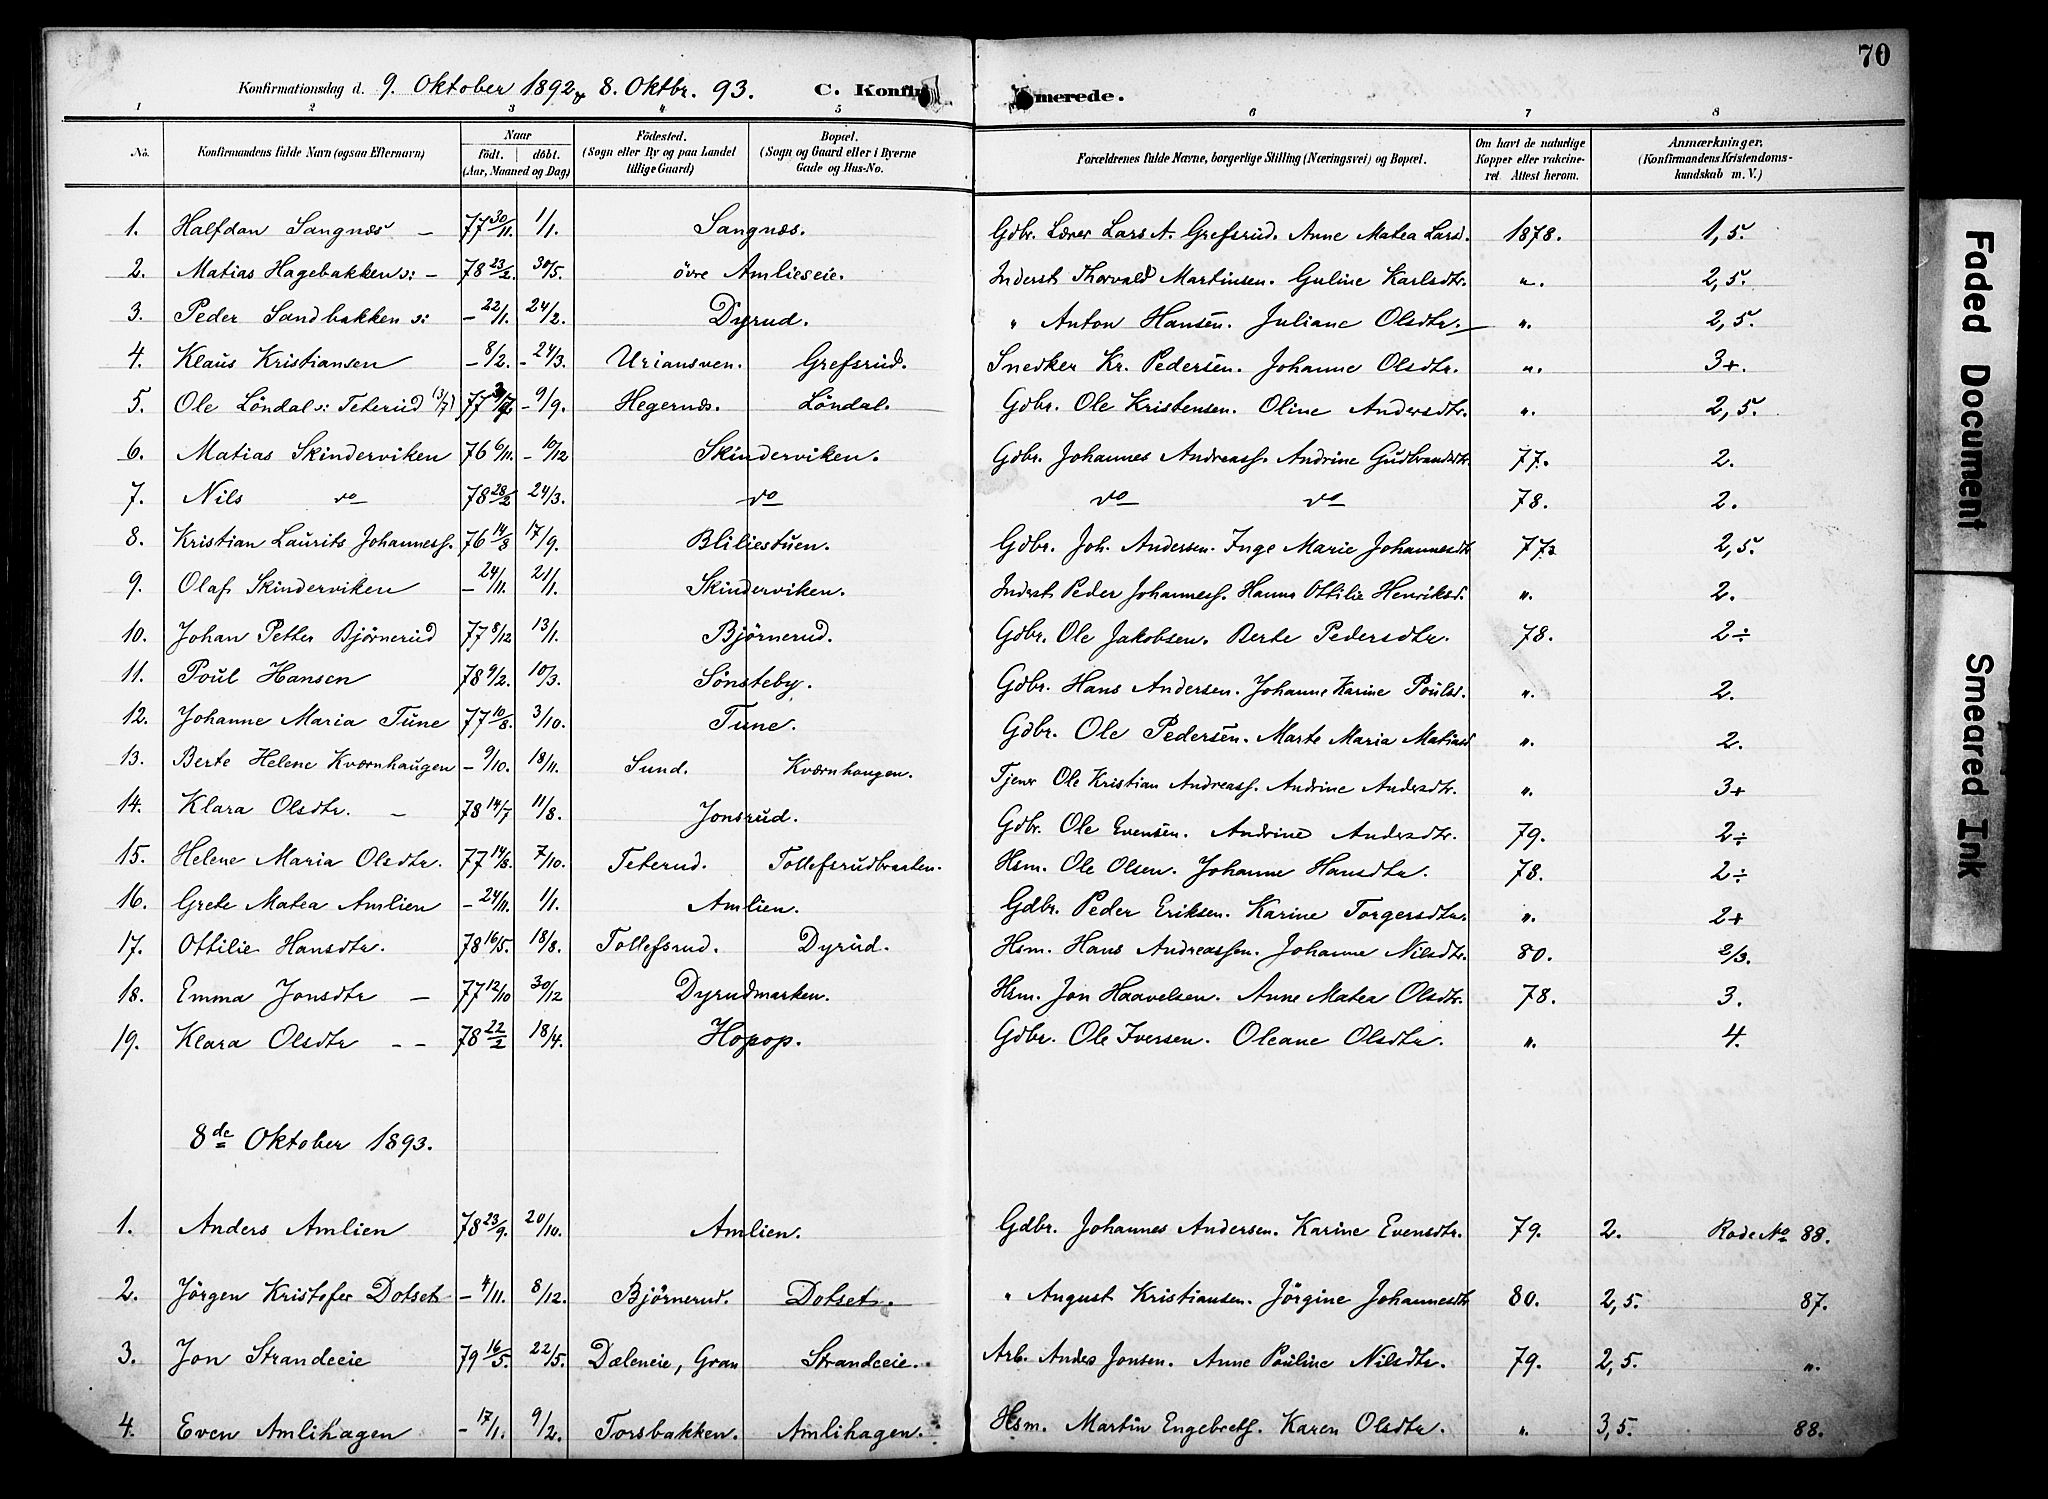 70
Konfirmationsdag d. 9. Oktober 1892 & 8. Oktbr. 93. C. Konfirmerede.
1 2 3 4 5 6 7 8
No. Konfirmandens fulde Navn (ogsaa Efternavn) Naar födt. döbt. (Aar, Maaned og Dag) Födested. (Sogn eller By og paa Landet tillige Gaard) Bopæl. (Sogn og Gaard eller i Byerne Gade og Hus-No. Forældrenes fulde Navne, borgerlige Stilling (Næringsvei) og Bopæl. Om havt de naturlige Kopper eller vakcineret. Attest herom. Anmærkninger, (Konfirmandens Kristendomskundskab m. V.)
1. Halfdan Sangnæs – 77 30/11. 1/1. Sangnæs. Gdbr. Lærer Lars A. Grefsrud. Anne Matea Larsd. 1878. 1,5.
2. Matias Hagebakken s: – 78 23/2. 30/5. övre Amlieseie. Inderst Thorvald Martinsen. Guline Karlsdtr. „. 2,5.
3. Peder Sandbakken s: – 22/1. 24/2. Dyrud. „ Anton Hansen. Juliane Olsdtr. „. 2,5.
4. Klaus Kristiansen – 8/2. – 24/3. Uriansven. Grefsrud. Snedker Kr. Pedersen. Johanne Olsdtr. „. 3+.
5. Ole Löndal s: Teterud (3/7) 77 3/7. – 9/9. Hegernæs. Löndal. Gdbr. Ole Kristensen. Oline Andersdtr. „. 2,5.
6. Matias Skinderviken 76 6/11. – 10/12 Skinderviken. Gdbr. Johannes Andreass. Andrine Gudbrandsdtr. 77. 2.
7. Nils do 78 28/2 24/3. do do do 78. 2.
8. Kristian Laurits Johanness. 76 14/8 17/9. Bliliestuen. Gdbr. Joh. Andersen. Inge Marie Johannesdtr 77. 2,5.
9. Olaf Skinderviken – 24/11. 21/1. Skinderviken. Inderst Peder Johanness. Hanna Ottilie Henriksd. „. 2.
10. Johan Petter Björnerud 77 8/12 13/1. Björnerud. Gdbr. Ole Jakobsen. Berte Pedersdtr. 78. 2÷
11. Poul Hansen 78 9/2. 10/3. Sönsteby. Gdbr. Hans Andersen. Johanne Karine Poulsd. „. 2.
12. Johanne Maria Tune 77 10/8. 3/10. Tune. Gdbr. Ole Pedersen. Marte Maria Matiasd „. 2.
13. Berte Helene Kværnhaugen – 9/10. 18/11. Sund. Kværnhaugen. Tjener Ole Kristian Andreass. Andrine Andersdtr. „. 3+
14. Klara Olsdtr. – 78 14/7 11/8. Jonsrud. Gdbr. Ole Evensen. Andrine Andersdtr. 79. 2÷
15. Helene Maria Olsdtr. 77 14/8. 7/10. Teterud. Tollefsrudbraaten. Hsm. Ole Olsen. Johanne Hansdtr. 78. 2÷
16. Grete Matea Amlien – 24/11. 1/1. Amlien. Gdbr. Peder Eriksen. Karine Torgersdtr. „. 2+
17. Ottilie Hansdtr. 78 16/5. 18/8. Tollefsrud. Dyrud. Hsm. Hans Andreassen. Johanne Nilsdtr. 80. 2/3.
18. Emma Jonsdtr – 77 12/10 30/12 Dyrudmarken. Hsm. Jon Haavelsen. Anne Matea Olsdtr. 78. 3.
19. Klara Olsdtr – – 78 22/2 18/4. Hopop. Gdbr. Ole Iversen. Oleane Olsdtr. „. 4.
8de Oktober 1893.
1. Anders Amlien 78 23/9. 20/10. Amlien. Gdbr. Johannes Andersen. Karine Evensdtr. 79. 2. Rode No 88.
2. Jörgen Kristofer Dotset – 4/11. 8/12. Björnerud. Dotset. „ August Kristiansen. Jörgine Johannesdtr 80. 2,5. 87.
3. Jon Strandeeie 79 16/5. 22/5. Dæleneie, Gran Strandeeie. Arb. Andes Jonsen. Anne Pauline Nilsdtr. 79. 2,5. „.
4. Even Amlihagen – 17/1. 9/2. Torsbakken. Amlihagen. Hsm. Martin Engebrets. Karen Olsdtr. „. 3,5. 88.
Faded Document
Smeared Ink